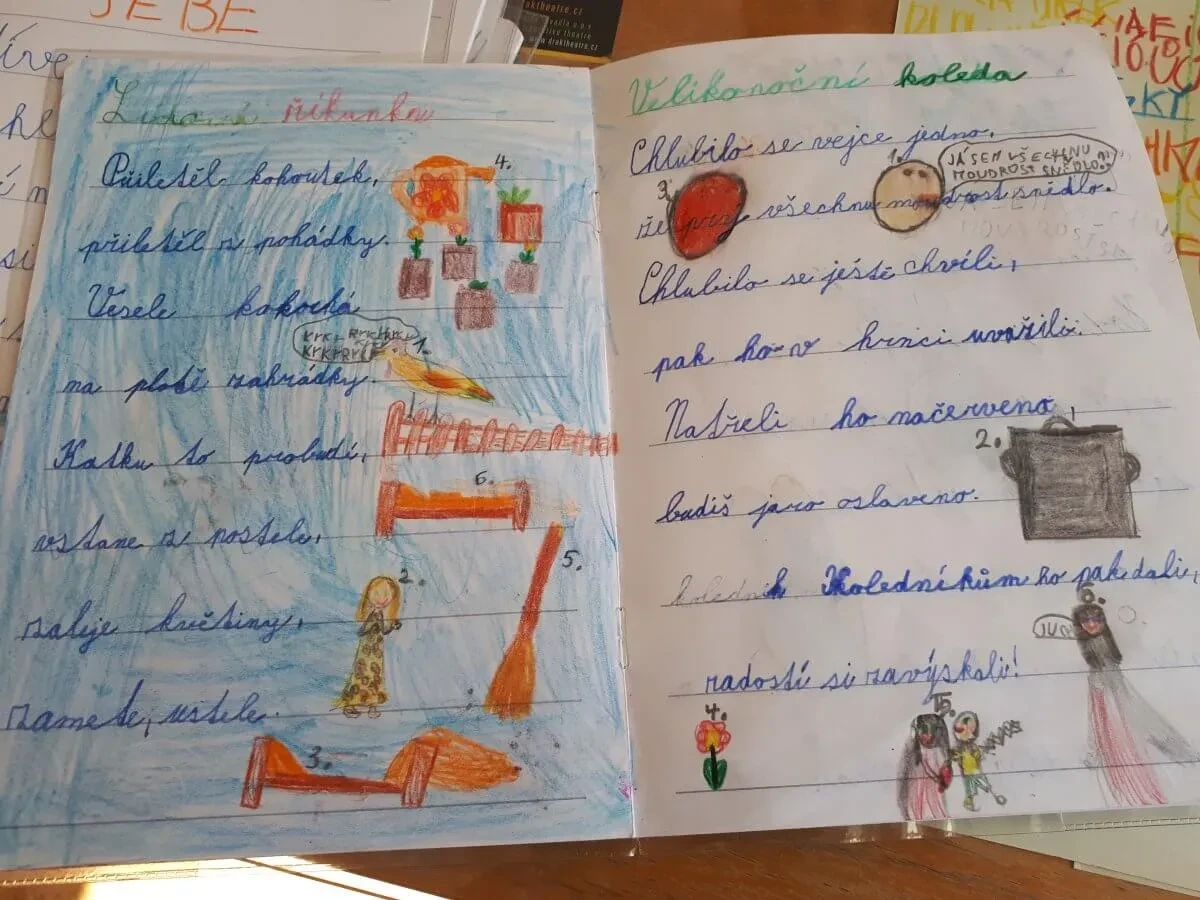 JE BE
draktheatre.cz
www.draktheatre.cz
Lidová říkanka
Přiletěl kohoutek,
4.
přiletěl z pohádky.
Vesele kokrhá
KYKI RYKYKY
KYKRYKÍ
1.
na plotě zahrádky.
Katku to probudí,
6.
vstane z postele,
5.
2.
zalije květiny,
zamete, ustele.
3.
Velikonoční koleda
Chlubilo se vejce jedno,
1.
JÁ SEM VŠECHNU
MOUDROST SNĚDLO.
3.
že prý všechnu moudrost snědlo.
Chlubilo se ještě chvíli,
pak ho v hrnci uvařili.
Natřeli ho načerveno,
2.
budiš jaro oslaveno.
koledník Koledníkům ho pak dali,
6.
radostí si zavýskali!
4.
5.